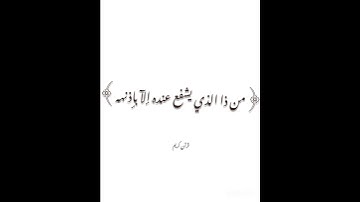 ﴿ من ذا الذي يشفع عنده إلآ بإذنهہ ﴾
قرآن كريم